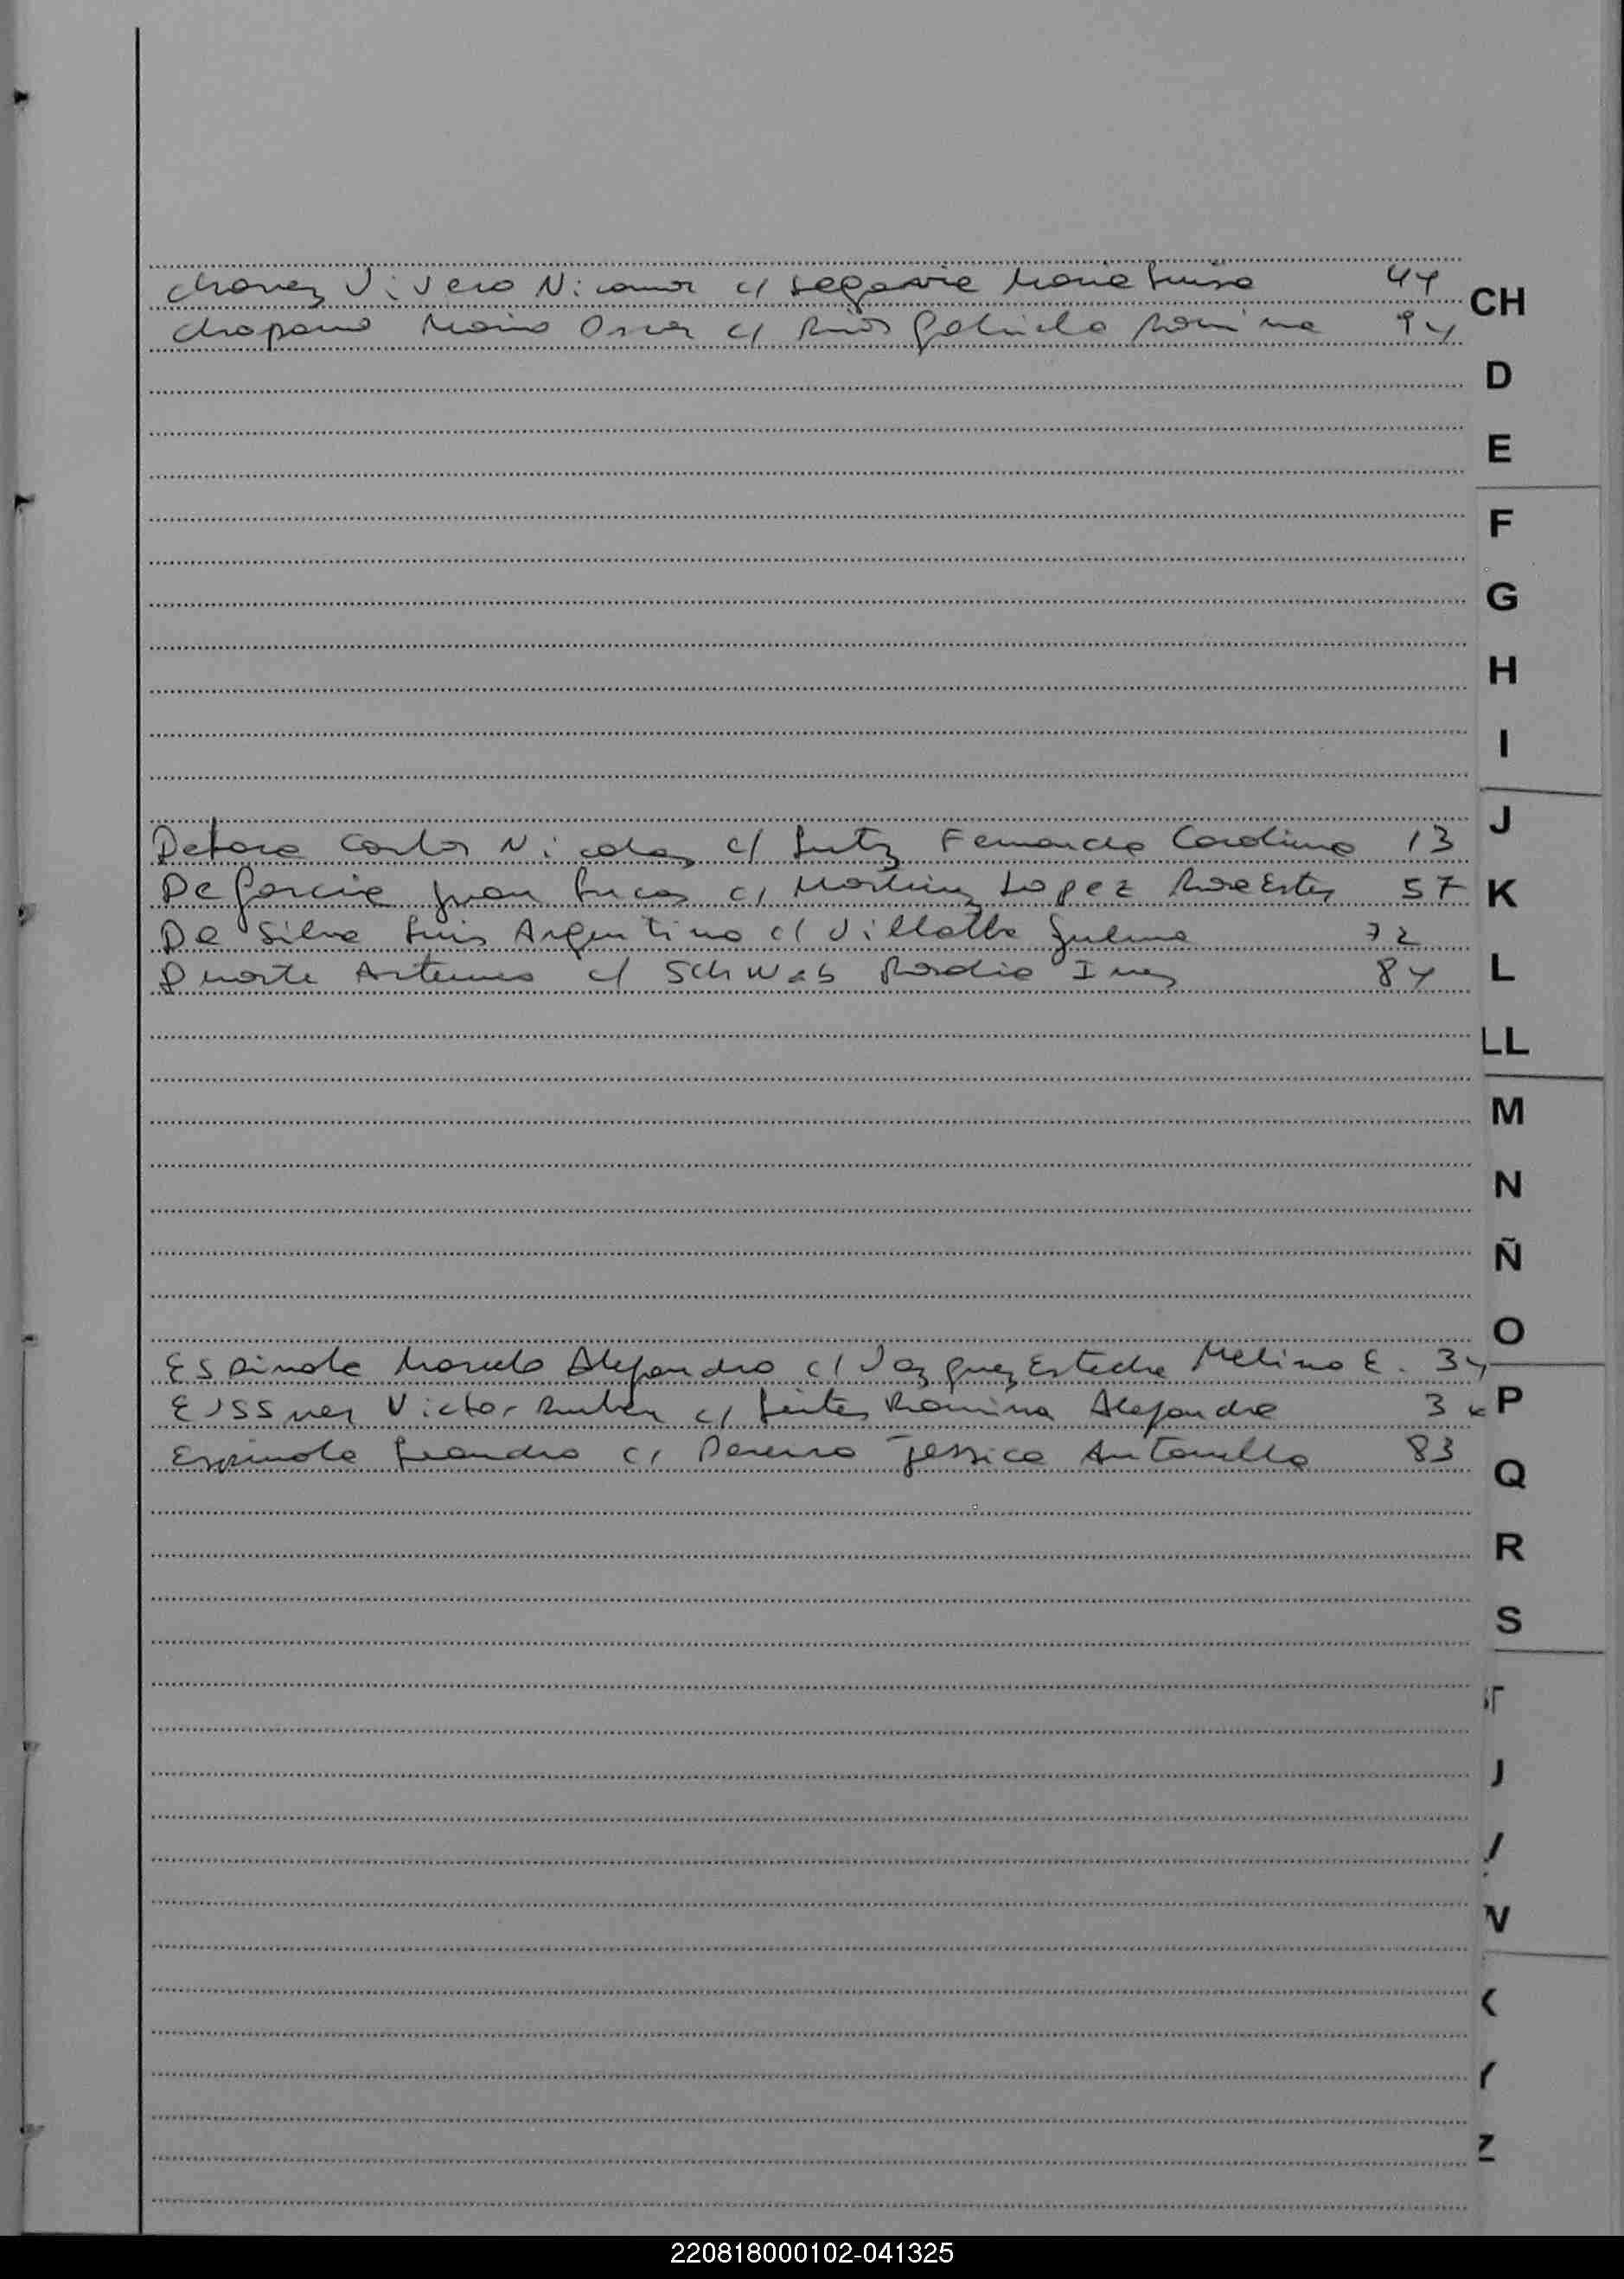 Chavez Vivero Nicanor c/ Segovia Maria Luisa 44
Chaparro Mario Oscar c/ Rios Gabriela Romina 94
CH
D
E
F
G
H
I
J
Detore Carlos Nicolas c/ Lutz Fernanda Carolina 13
De Garcia Juan Lucas c/ Martinez Lopez Rosa Ester 57
K
Da Silva Luis Argentino c/ Villalba Julina 72
Duarte Artemio c/ Schwab Rosalia Ines 84
L
LL
M
N
Ñ
O
Espinola Marcelo Alejandro c/ Vazquez Esteche Melina E. 34
Eissner Victor Ruben c/ Leites Romina Alejandra 34
P
Espinola Leandro c/ Pereira Jessica Antonella 83
Q
R
S
T
Z
220818000102-041325